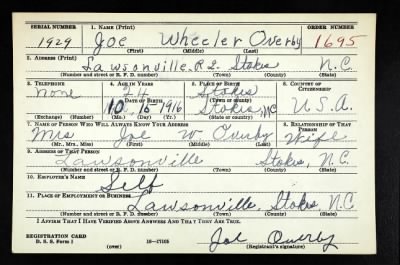 SERIAL NUMBER 1. NAME (Print) ORDER NUMBER
1929 Joe Wheeler Overby 1695
(First) (Middle) (Last)
2. ADDRESS (Print)
Lawsonville R2 Stokes N.C.
(Number and street or R. F. D. number) (Town) (County) (State)
3. TELEPHONE 4. AGE IN YEARS 5. PLACE OF BIRTH 6. COUNTRY OF CITIZENSHIP
None 24 Stokes
DATE OF BIRTH (Town or county)
10 16 1916 Stokes, NC U.S.A.
(Exchange) (Number) (Mo.) (Day) (Yr.) (State or country)
7. NAME OF PERSON WHO WILL ALWAYS KNOW YOUR ADDRESS 8. RELATIONSHIP OF THAT PERSON
Mrs Joe W Overby Wife
(Mr., Mrs., Miss) (First) (Middle) (Last)
9. ADDRESS OF THAT PERSON
Lawsonville Stokes, N.C.
(Number and street or R. F. D. number) (Town) (County) (State)
10. EMPLOYER'S NAME
Self
11. PLACE OF EMPLOYMENT OR BUSINESS
Lawsonville, Stokes, N.C.
(Number and street or R. F. D. number) (Town) (County) (State)
I AFFIRM THAT I HAVE VERIFIED ABOVE ANSWERS AND THAT THEY ARE TRUE.
REGISTRATION CARD
D. S. S. Form 1 (over) 16—17105 Joe Overby
(Registrant's signature)